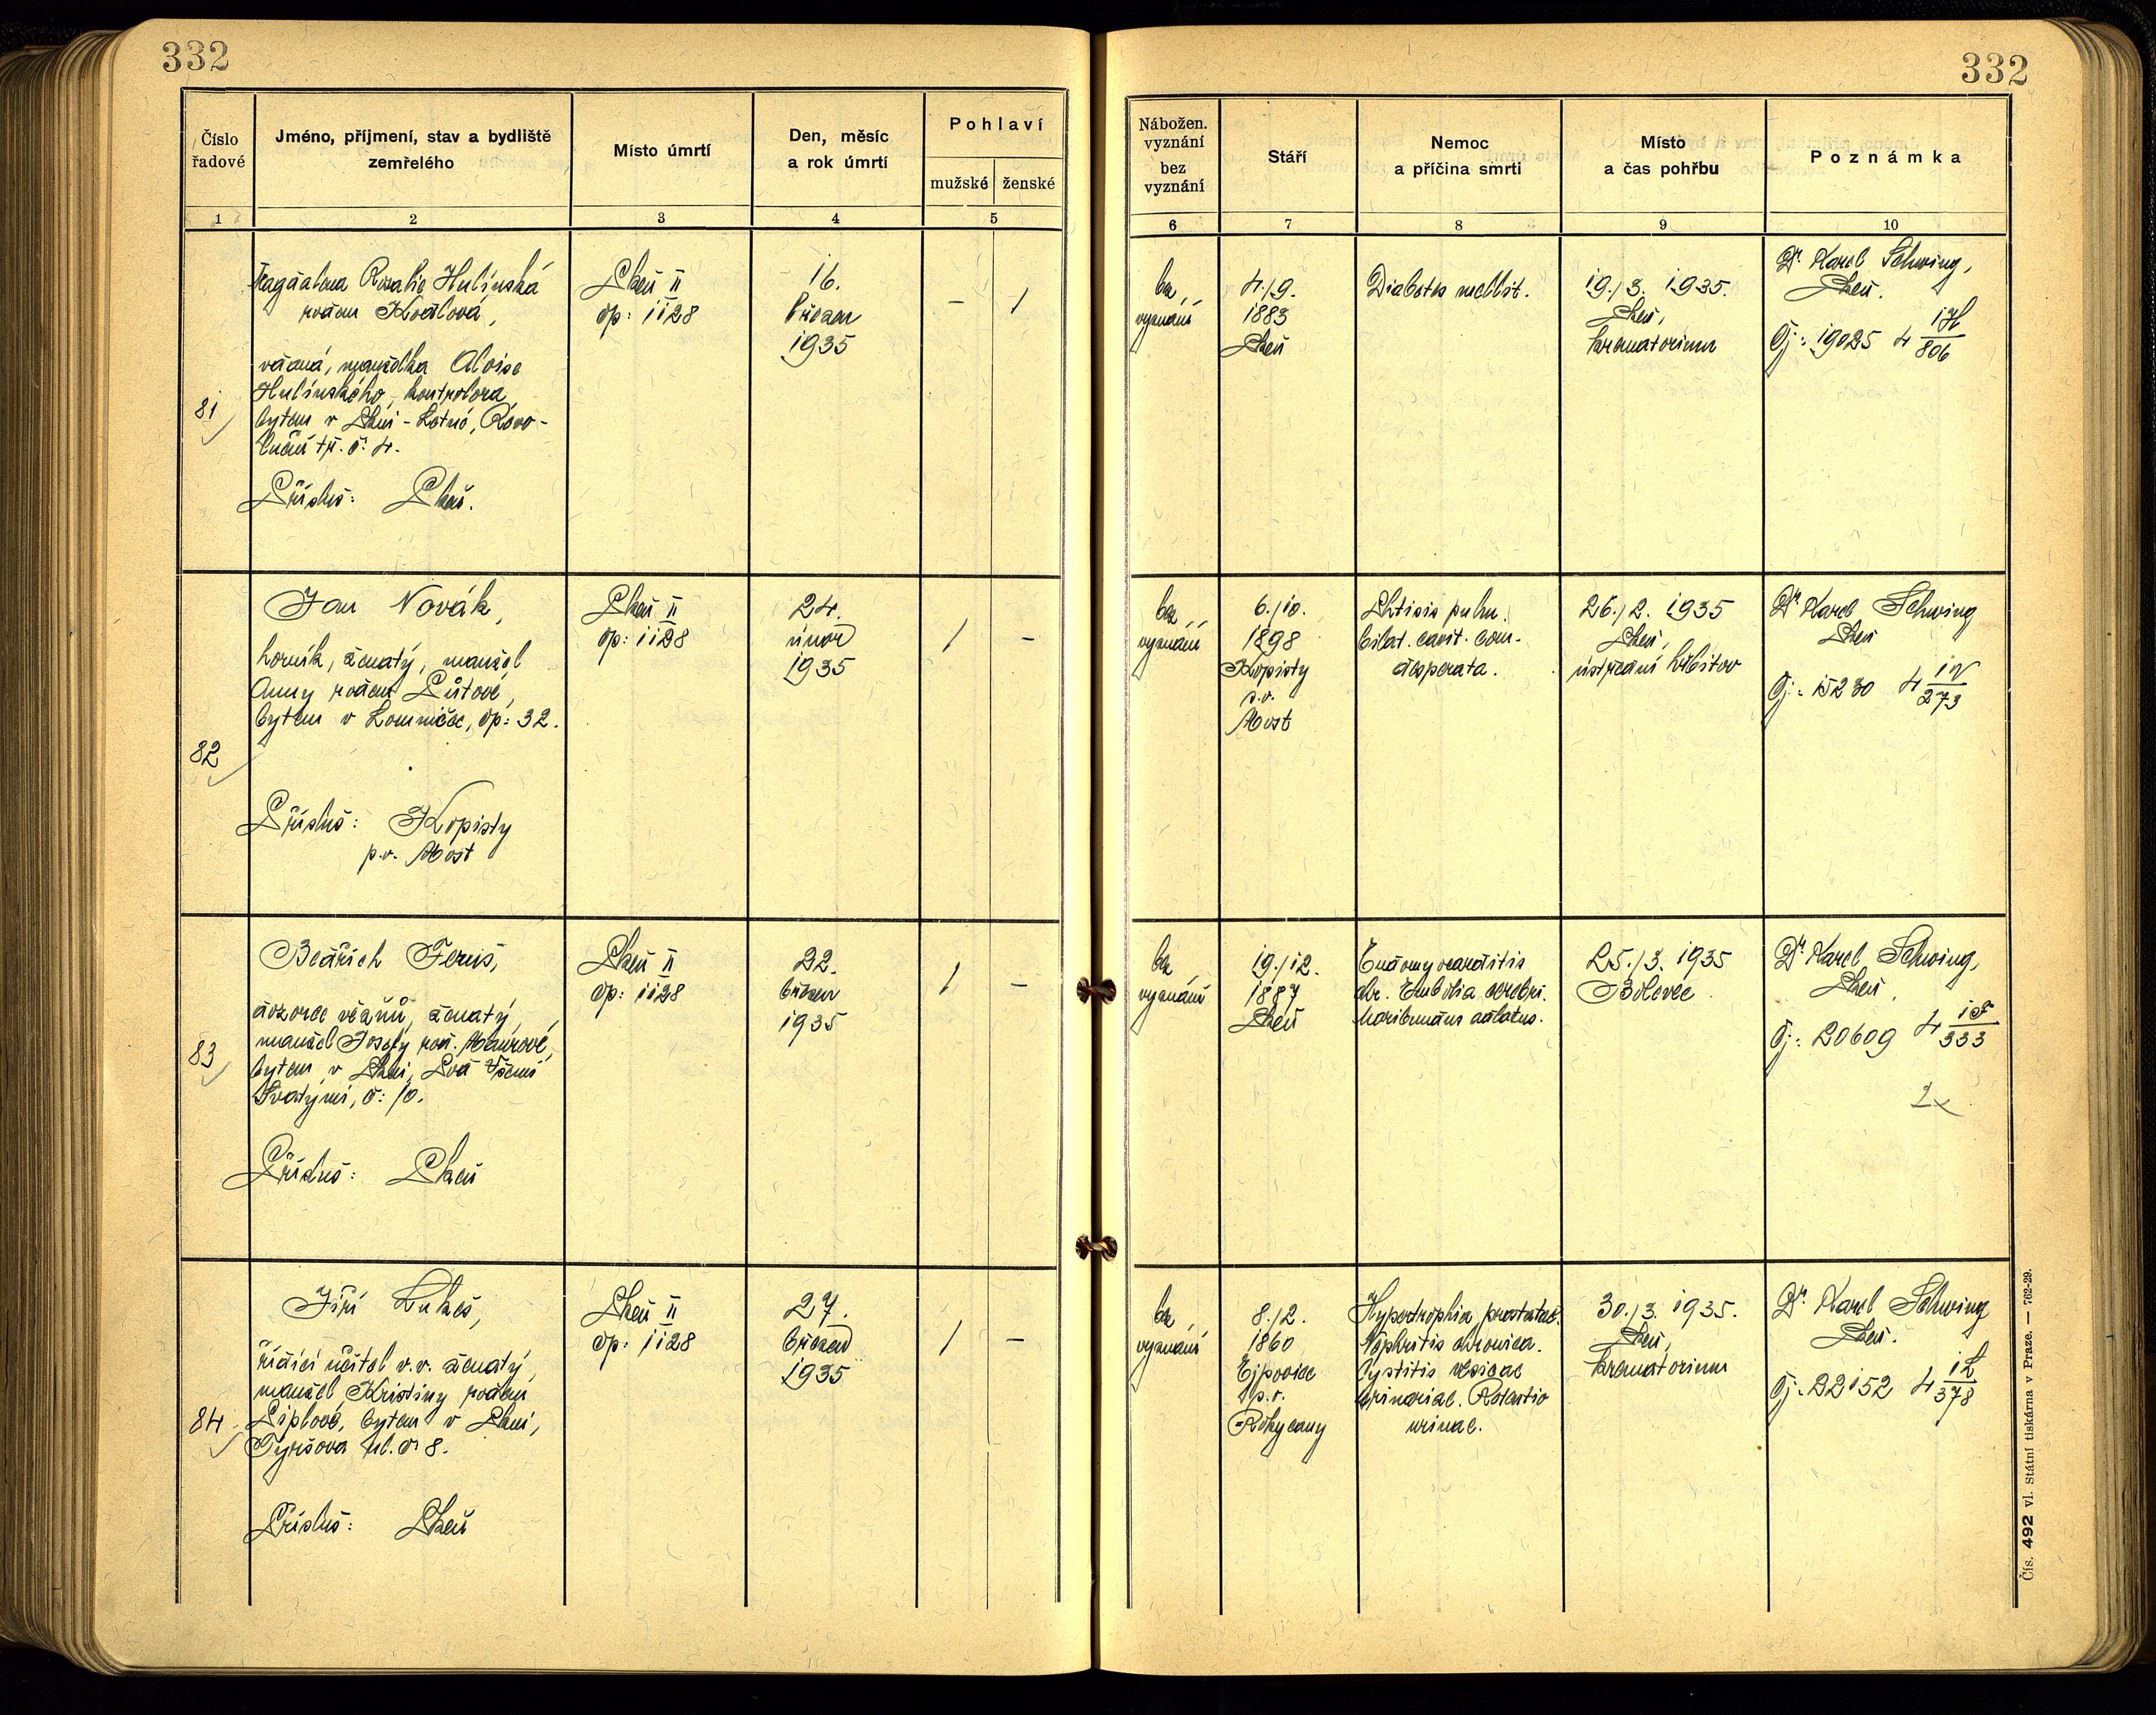 332
332
Číslo
řadové
Jméno, příjmení, stav a bydliště
zemřelého
Místo úmrtí
Den, měsíc
a rok úmrtí
Pohlaví
mužské
ženské
Nábožen.
vyznání
bez
vyznání
Stáří
Nemoc
a příčina smrti
Místo
a čas pohřbu
Poznámka
1
2
3
4
5
6
7
8
9
10
81
Magdalena Rosalie Hulínská
rozen Koválová,
vdaná, manželka Aloise
Hulínského, kontrolora
bytem v Plzni - Lotně, Revo-
luční tř. č: 4.
Přísluš: Plzeň.
Plzeň II
čp: 1128
16.
březen
1935
–
/
bez
vyznání
4./9.
1883
Plzeň
Diabetes mellit.
19./3. 1935.
Plzeň,
krematorium
Dr. Karel Schwing,
Plzeň.
Čj: 19025 4 1H/806
82
Jan Novák,
horník, ženatý, manžel
Anny rozen
bytem v Lomničce, čp: 32.
Přísluš: Kopisty
p.v. Most
Plzeň II
čp: 1128
24.
únor
1935
/
–
bez
vyznání
6./10.
1898
Kopisty
p.v.
Most
Phtisis pulm.
bilat. cavit. con-
desperata.
26./2. 1935
Plzeň,
ústřední hřbitov
Dr. Karel Schwing
Plzeň
Čj: 15230 4 1N/273
83
Bedřich Fereš,
dozorce vězňů, ženatý,
manžel Josefy roz. Maurové,
bytem v Plzni, Pod Všemi
Svatými, č: 10.
Přísluš: Plzeň
Plzeň II
čp: 1128
22.
březen
1935
/
–
bez
vyznání
19./12.
1887
Plzeň
Endomyocarditis
chr. Embolia cerebri.
Moribundus adlatus.
25./3. 1935
Bolevec
Dr. Karel Schwing,
Plzeň.
Čj: 20609 4 1F/333
2x
84
Jiří Lukeš,
řídící učitel v.v. ženatý,
manžel Kristiny rozen
Liplové, bytem v Plzni,
Tyršova ul. č: 8.
Přísluš: Plzeň
Plzeň II
čp: 1128
27.
březen
1935
/
–
bez
vyznání
8./2.
1860
Ejpovice
p.v.
Rokycany
Hypertrophia prostatae.
Nephritis chronica.
Cystitis vesicae
urinariae. Retentio
urinae.
30./3. 1935.
Plzeň,
krematorium
Dr. Karel Schwing
Plzeň.
Čj: 22152 4 1L/378
Čís. 492 vl. Státní tiskárna v Praze. — 762-29.